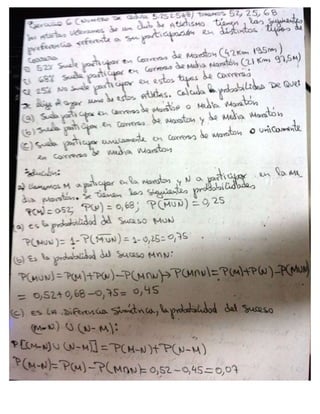 Ejercicio 6 (Número de cédula 5.252.568) Tenemos 52, 25, 68
Los atletas veteranos de un club de Atletismo tienen, las siguientes
preferencias referente a su participación en distintos tipos de
carrera
52% Suele participar en carrera de Maratón (42Km 195m)
68% Suele participar en carrera de Media Maratón (21 Km 97,5M)
25% No Suele participar en estos tipos de carreras
Se elige al azar uno de estos atletas. Calcula la probabilidad De que:
(a) Suela participar en carreras de maratón o Media Maratón
(b) Suela participar en carreras de Maraton y de Media Maratón
(c) Suela participar unicamente en carreras de maratón o unicamente
en carreras de media maratón
Solución:
a) llamamos M a participar en la maratón y N a participar en la me
dia maratón. Se tienen las siguientes probabilidades
P(M) = 0,52; P(N) = 0,68; P(MUN) = 0,25
(a) es la probabilidad del Suceso MUN
P(MUN) = 1-P(MUN) = 1-0,25=0,75
(b) Es la probabilidad del Suceso M∩N:
P(MUN)=P(M)+P(N)-P(M∩N)→P(M∩N)=P(M)+P(N)-P(MUN)
= 0,52+0,68-0,75= 0,45
(c) es la Diferencia Simétrica, la probabilidad del Suceso
(M-N) U (N-M):
P[(M-N)U(N-M)] = P(M-N)+P(N-M)
P(M-N)=P(M)-P(M∩N)=0,52-0,45=0,07